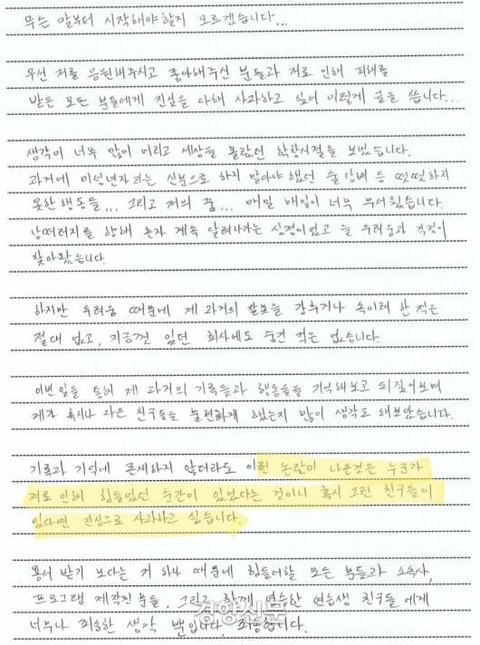 무슨 말부터 시작해야할지 모르겠습니다...
우선 저를 응원해주시고 좋아해주신 분들과 저로 인해 피해를
받은 모든 분들에게 진심을 다해 사과하고 싶어 이렇게 글을 씁니다...
생각이 너무 많이 어리고 세상을 몰랐던 학창시절을 보냈습니다.
과거에 미성년자라는 신분으로 하지 말아야 했던 술 담배 등 떳떳하지
못한 행동들... 그리고 저의 꿈... 매일 매일이 너무 무서웠습니다.
낭떠러지를 향해 혼자 계속 달려나가는 심정이었고 늘 두려움과 걱정이
찾아왔습니다.
하지만 두려움 때문에 제 과거의 잘못을 감추거나 속이려 한 적은
절대 없고, 지금껏 있던 회사에도 숨긴 적은 없습니다.
이번일을 통해 제 과거의 기록들과 행동들을 기억해보고 되짚어보며
제가 혹시나 다른 친구들을 불편하게 했는지 많이 생각도 해보았습니다.
기록과 기억에 존재하지 않더라도 이런 논란이 나온것은 누군가
저로 인해 힘들었던 순간이 있었다는 것이니 혹시 그런 친구들이
있다면 진심으로 사과하고 싶습니다.
용서 받기 보다는 저 하나 때문에 힘들어할 모든 분들과 소속사,
프로그램 제작진분들, 그리고 함께 연습한 연습생 친구들 에게
너무나 죄송한 생각 뿐입니다. 죄송합니다.
경향신문